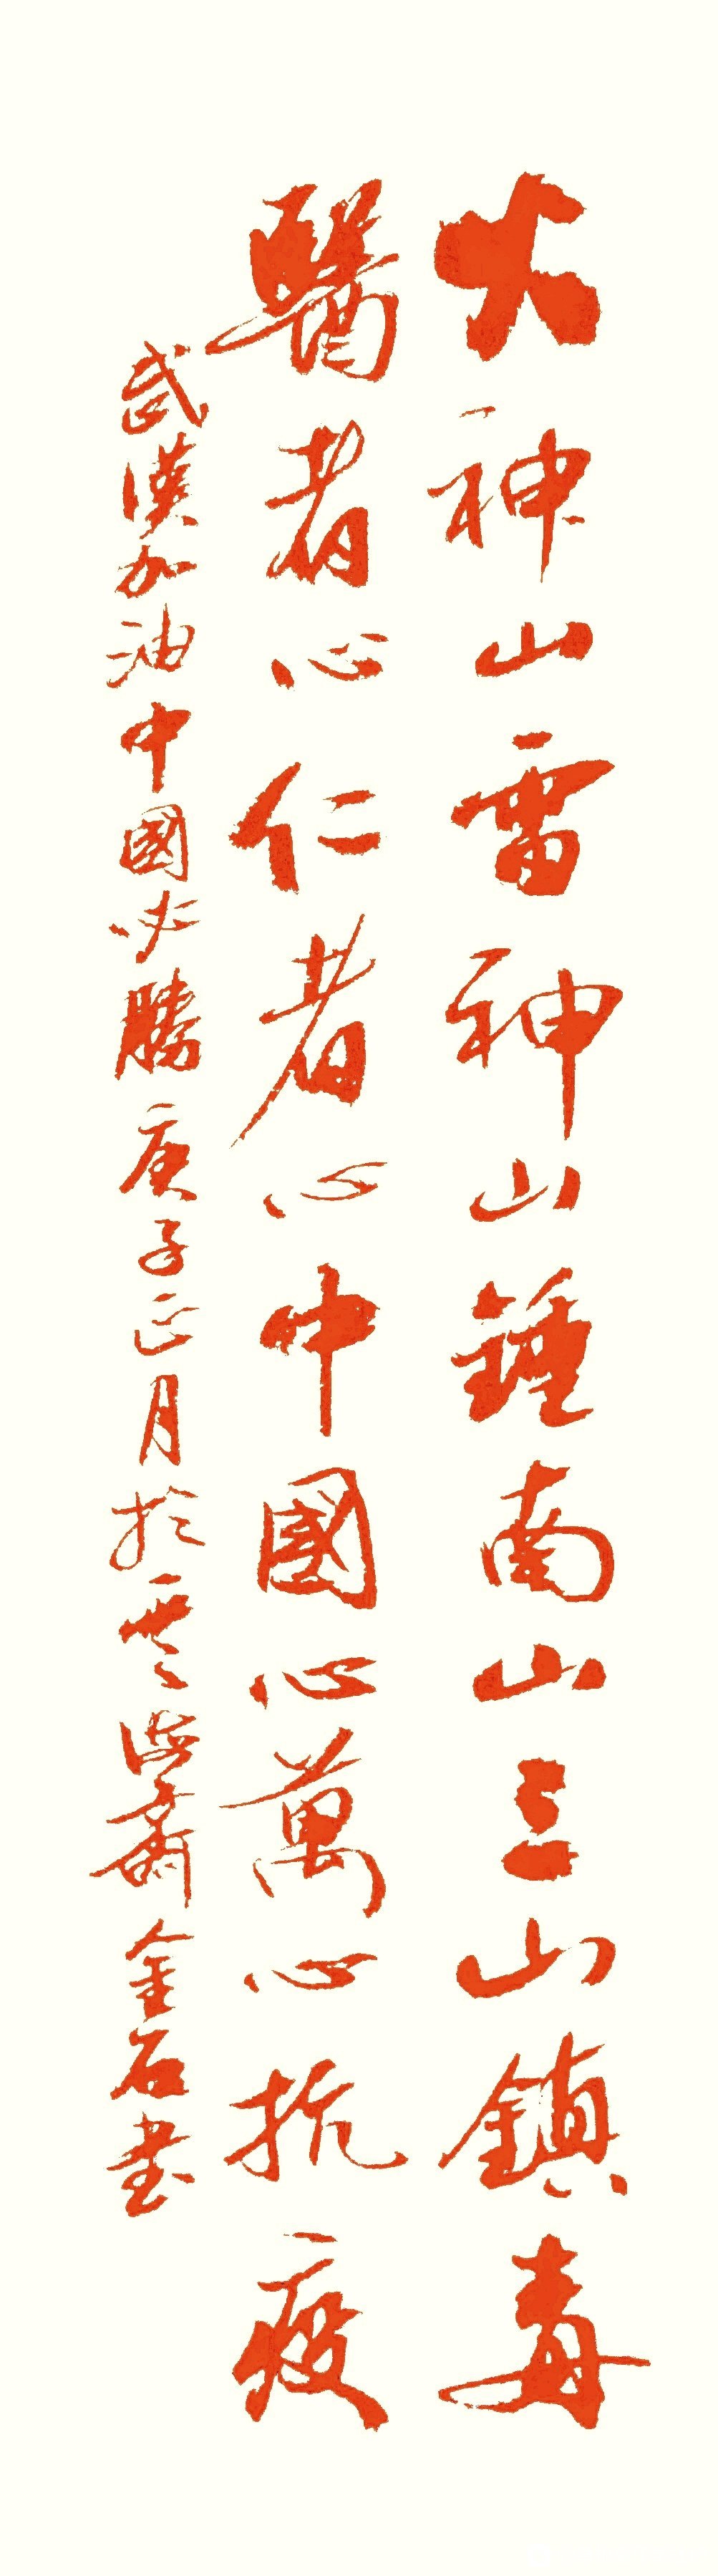 火神山雷神山鍾南山三山鎮毒
醫者心仁者心中國心萬心抗疫
武漢加油中國必勝庚子正月於雲海齋金石书